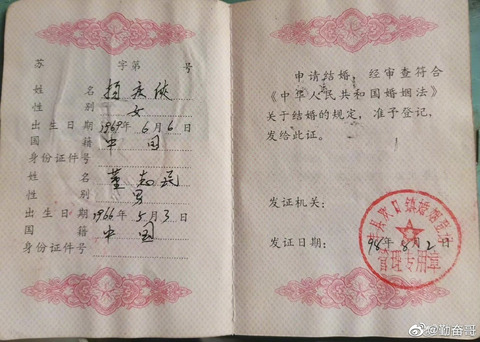 苏 字第 号
姓 名 杨庆侠
性 别 女
出生日期 1969年6月6日
国 籍 中国
身份证件号
姓 名 董志民
性 别 男
出生日期 1966年5月3
国 籍 中国
身份证件号
申请结婚，经审查符合
《中华人民共和国婚姻法》
关于结婚的规定，准予登记，
发给此证。
发证机关：
发证日期： 98年8月2日
县欢口镇婚姻登记
管理专用章
@勤奋哥